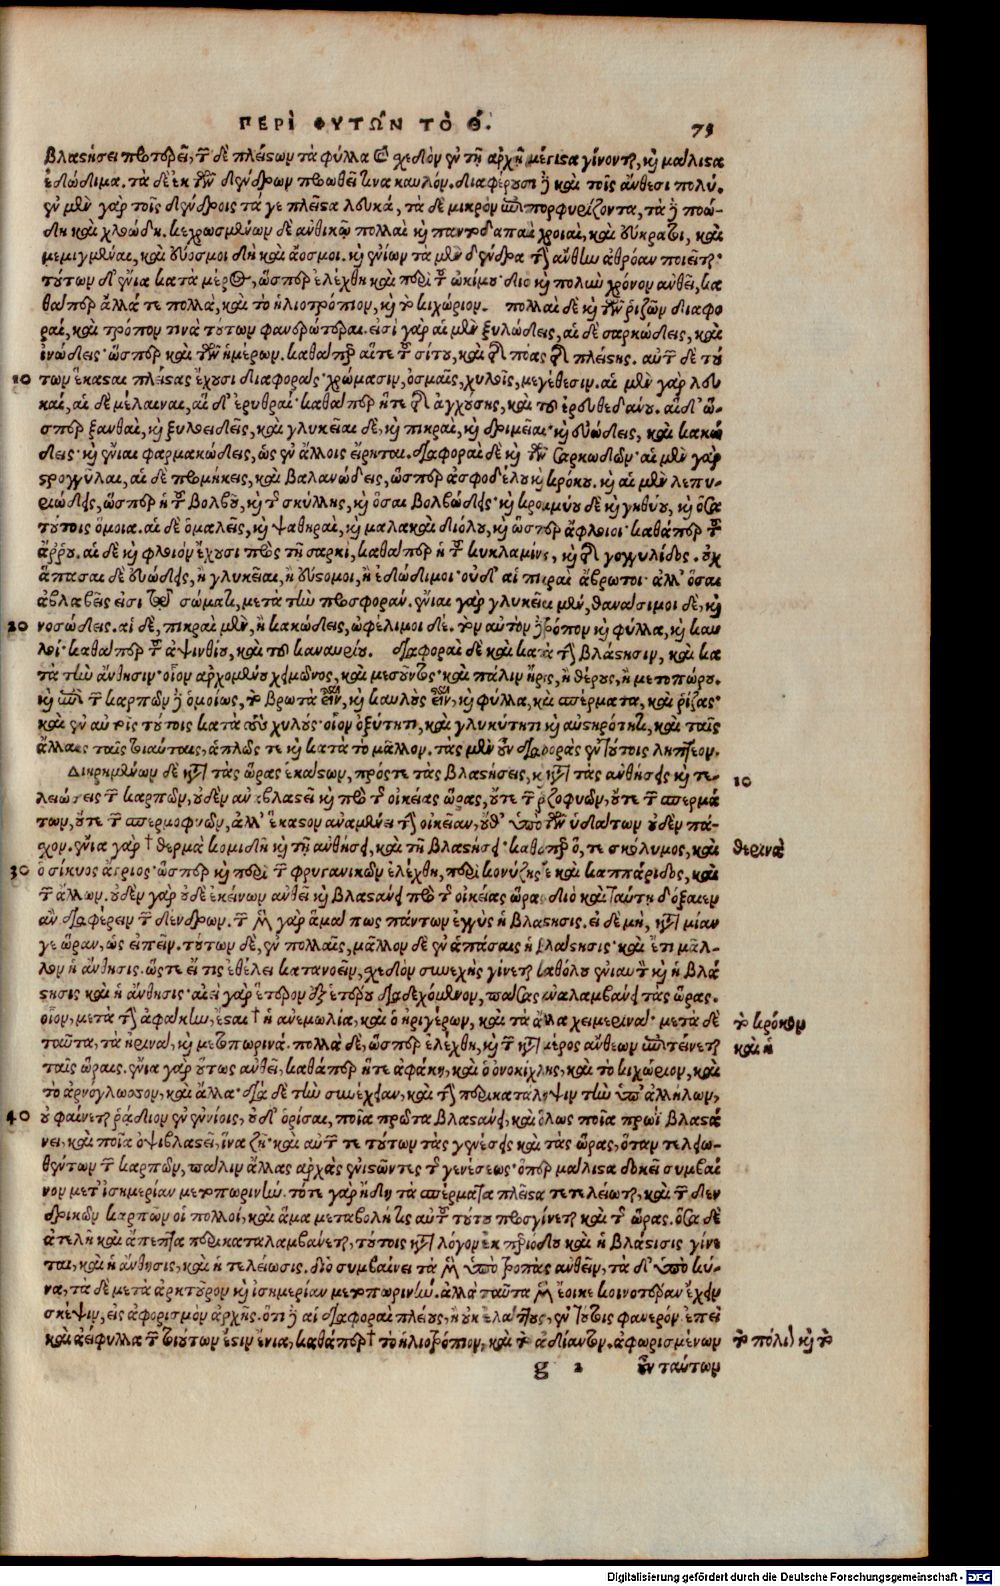 ΠΕΡῚ ΦΥΤΩ͂Ν ΤῸ Θ΄. 75
βλαστήσει προτερεῖ, τῶν δὲ πλείστων τὰ φύλλα σχεδὸν ἐν τῇ ἀρχῇ μέγιστα γίνονται, καὶ μάλιστα
ἐδώδιμα. τὰ δὲ ἐκ τῶν δένδρων προωθεῖ τινα καυλόν. διαφέρουσι δὲ καὶ τοῖς ἄνθεσι πολύ.
ἐν μὲν γὰρ τοῖς δένδροις τά γε πλεῖστα λευκά, τὰ δὲ μικρὸν ἐπιπορφυρίζοντα, τὰ δὲ ποώ-
δη καὶ χλοώδη. κεχρωσμένων δὲ ἀνθικῶν πολλαὶ καὶ παντοδαπαὶ χροιαί, καὶ εὔκρατοι, καὶ
μεμιγμέναι, καὶ εὔοσμοι δὴ καὶ ἄοσμοι. καὶ ἐνίων τὰ μὲν δένδρα τὴν ἄνθην ἀθρόαν ποιεῖται·
τούτων δ' ἔνια κατὰ μέρος, ὥσπερ ἐλέχθη καὶ περὶ τοῦ ὠκίμου· διὸ καὶ πολὺν χρόνον ἀνθεῖ, κα
θάπερ ἄλλά τε πολλά, καὶ τὸ ἡλιοτρόπιον, καὶ τὸ κιχώριον. πολλαὶ δὲ καὶ τῶν ῥιζῶν διαφο
ραί, καὶ τρόπον τινὰ τούτων φανερώτεραι. εἰσὶ γὰρ αἱ μὲν ξυλώδεις, αἱ δὲ σαρκώδεις, καὶ
ἰνώδεις· ὥσπερ καὶ τῶν ἡμέρων. καθάπερ αἵ τε τοῦ σίτου, καὶ τῆς πόας τῆς πλείστης. αὐτῶν δὲ τού
10 των ἕκασται πλείστας ἔχουσι διαφοράς· χρώμασιν, ὀσμαῖς, χυλοῖς, μεγέθεσιν. αἱ μὲν γὰρ λευ
καί, αἱ δὲ μέλαιναι, αἱ δ' ἐρυθραί· καθάπερ ἥ τε τῆς ἀγχούσης, καὶ τοῦ ἐρευθεδάνου. αἱ δ' ὥ-
σπερ ξανθαί, καὶ ξυλοειδεῖς, καὶ γλυκεῖαι δέ, καὶ πικραί, καὶ δριμεῖαι· καὶ εὐώδεις, καὶ κακώ
δεις· καὶ ἔνιαι φαρμακώδεις, ὡς ἐν ἄλλοις εἴρηται. διαφοραὶ δὲ καὶ τῶν σαρκωδῶν· αἱ μὲν γὰρ
στρογγύλαι, αἱ δὲ προμήκεις, καὶ βαλανώδεις, ὥσπερ ἀσφοδέλου καὶ κρόκου. καὶ αἱ μὲν λεπυ-
ριώδεις, ὥσπερ ἡ τοῦ βολβοῦ, καὶ τῆς σκύλλης, καὶ ὅσαι βολβώδεις· καὶ κρομμύου δὲ καὶ γηθύου, καὶ ὅσα
τούτοις ὅμοια. αἱ δὲ ὁμαλεῖς, καὶ ψαθηραί, καὶ μαλακαὶ διόλου, καὶ ὥσπερ ἄφλοιοι· καθάπερ τοῦ
ἄρρου. αἱ δὲ καὶ φλοιὸν ἔχουσι πρὸς τῇ σαρκί, καθάπερ ἡ τοῦ κυκλαμίνου, καὶ τῆς γογγυλίδος. οὐχ
ἅπασαι δὲ εὐώδεις, ἢ γλυκεῖαι, ἢ εὔστομοι, ἢ ἐδώδιμοι· οὐδ' αἱ πικραὶ ἄβρωτοι· ἀλλ' ὅσαι
ἀβλαβεῖς εἰσι τῷ σώματι, μετὰ τὴν προσφοράν. ἔνιαι γὰρ γλυκεῖαι μέν, θανάσιμοι δέ, καὶ
20 νοσώδεις. αἱ δέ, πικραὶ μέν, ἢ κακώδεις, ὠφέλιμοι δέ. τὸν αὐτὸν τρόπον καὶ φύλλα, καὶ καυ
λοί· καθάπερ τοῦ ἀψινθίου, καὶ τοῦ κενταυρίου. διαφοραὶ δὲ καὶ κατὰ τὴν βλάστησιν, καὶ κα
τὰ τὴν ἄνθησιν· οἷον ἀρχομένου χειμῶνος, καὶ μεσοῦντος· καὶ πάλιν ἦρος, ἢ θέρους, ἢ μετοπώρου.
καὶ ἐπὶ τῶν καρπῶν δὲ ὁμοίως, τὸ βρωτὰ εἶναι, καὶ καυλοὺς εἶναι, καὶ φύλλα, καὶ σπέρματα, καὶ ῥίζας·
καὶ ἐν αὐτοῖς τούτοις κατὰ τοὺς χυλούς· οἷον ὀξύτητι, καὶ γλυκύτητι καὶ αὐστηρότητι, καὶ ταῖς
ἄλλαις ταῖς τοιαύταις, ἁπλῶς τε καὶ κατὰ τὸ μᾶλλον. τὰς μὲν οὖν διαφορὰς ἐν τούτοις ληπτέον.
Διῃρημένων δὲ κατὰ τὰς ὥρας ἑκάστων, πρός τε τὰς βλαστήσεις, καὶ κατὰ τὰς ἀνθήσεις καὶ τε- 10
λειώσεις τῶν καρπῶν, οὐδὲν ἀναβλαστεῖ καὶ πρὸ τῆς οἰκείας ὥρας, οὔτε τῶν ῥιζοφυῶν, οὔτε τῶν σπερμά
των, οὔτε τῶν σπερμοφυῶν, ἀλλ' ἕκαστον ἀναμένει τὴν οἰκείαν, οὐδ' ὑπὸ τῶν ὑδάτων οὐδὲν πά-
σχον. ἔνια γὰρ † θερμὰ κομιδῇ καὶ τῇ ἀνθήσει, καὶ τῇ βλαστήσει· καθάπερ ὅ, τε σκόλυμος, καὶ θερινὰ
30 ὁ σίκυος ἄγριος· ὥσπερ καὶ περὶ τῶν φρυγανικῶν ἐλέχθη, περὶ κονύζης τε καὶ καππάριδος, καὶ
τῶν ἄλλων. οὐδὲν γὰρ οὐδὲ ἐκείνων ἀνθεῖ καὶ βλαστάνει πρὸ τῆς οἰκείας ὥρας· διὸ καὶ ταύτῃ δόξαιεν
ἂν διαφέρειν τῶν δένδρων. τῶν μὲν γὰρ ἅμα πως πάντων ἐγγὺς ἡ βλάστησις. εἰ δὲ μή, κατὰ μίαν
γε ὥραν, ὡς εἰπεῖν. τούτων δέ, ἐν πολλαῖς, μᾶλλον δὲ ἐν ἁπάσαις ἡ βλάστησις· καὶ ἔτι μᾶλ-
λον ἡ ἄνθησις. ὥστε εἴ τις ἐθέλει κατανοεῖν, σχεδὸν συνεχὴς γίνεται καθόλου ἐνιαυτὸν καὶ ἡ βλά
στησις καὶ ἡ ἄνθησις· αἰεὶ γὰρ ἕτερον ἐξ ἑτέρου διαδεχόμενον, πάσας καταλαμβάνει τὰς ὥρας.
οἷον, μετὰ τὴν ἀφάκην, ἔσται † ἡ ἀνεμωλία, καὶ ὁ ἠριγέρων, καὶ τὰ ἄλλα χειμερινά· μετὰ δὲ τὸ κρόκον
ταῦτα, τὰ ἠρινά, καὶ μετοπωρινά. πολλὰ δέ, ὥσπερ ἐλέχθη, καὶ τῶν κατὰ μέρος ἀνθέων ἐπιτείνεται καὶ ἡ
ταῖς ὥραις. ἔνια γὰρ οὕτως ἀνθεῖ, καθάπερ ἥ τε ἀφάκη, καὶ ὁ ὀνοκίχλης, καὶ τὸ κιχώριον, καὶ
τὸ ἀρνόγλωσσον, καὶ ἄλλα· διὰ δὲ τὴν συνέχειαν, καὶ τὴν περικατάληψιν τὴν ὑπ' ἀλλήλων,
40 οὐ φαίνεται ῥᾴδιον ἐν ἐνίοις, οὐδ' ὁρίσαι, ποῖα πρῶτα βλαστάνει, καὶ ὅλως ποῖα πρωῒ βλαστά
νει, καὶ ποῖα ὀψιβλαστεῖ, ἵνα ζῇ· καὶ αὐτῶν τε τούτων τὰς γενέσεις καὶ τὰς ὥρας, ὅταν τελεω-
θέντων τῶν καρπῶν, πάλιν ἄλλας ἀρχὰς ἐνιστῶντες τῆς γενέσεως· ὅπερ μάλιστα δοκεῖ συμβαί
νον μετ' ἰσημερίαν μετοπωρινήν. τότε γὰρ ἤδη τὰ σπέρματα πλεῖστα τετελείωται, καὶ τῶν δεν
δρικῶν καρπῶν οἱ πολλοί, καὶ ἅμα μεταβολή τις αὐτοῦ τούτου προσγίνεται καὶ τῆς ὥρας. ὅσα δὲ
ἀτελῆ καὶ ἄπεπτα περικαταλαμβάνεται, τούτοις κατὰ λόγον ἐκ περιόδου καὶ ἡ βλάστησις γίνε
ται, καὶ ἡ ἄνθησις, καὶ ἡ τελείωσις. διὸ συμβαίνει τὰ μὲν ὑπὸ τροπὰς ἀνθεῖν, τὰ δ' ὑπὸ κύ-
να, τὰ δὲ μετὰ ἀρκτοῦρον καὶ ἰσημερίαν μετοπωρινήν. ἀλλὰ ταῦτα μὲν ἔοικε κοινοτέραν ἔχειν
σκέψιν, εἰς ἀφορισμὸν ἀρχῆς. ὅτι δὲ αἱ διαφοραὶ πλείους, ἢ οὐκ ἐλάττους, ἐν τούτοις φανερόν. ἐπεὶ
καὶ ἀείφυλλα τῶν τοιούτων ἐστὶν ἔνια, καθάπερ † τὸ ἡλιοτρόπιον, καὶ τὸ ἀδίαντον. ἀφωρισμένων τὸ πόλιον καὶ τὸ
g 2 οὖν ταύτων